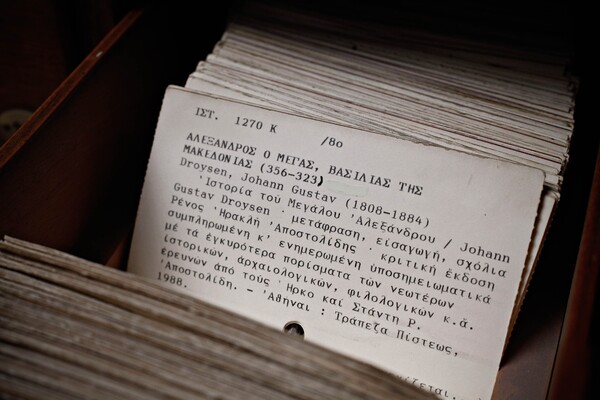 ΙΣΤ. 1270 Κ /8ο
ΑΛΕΞΑΝΔΡΟΣ Ο ΜΕΓΑΣ, ΒΑΣΙΛΙΑΣ ΤΗΣ
ΜΑΚΕΔΟΝΙΑΣ (356-323)
Droysen, Johann Gustav (1808-1884)
Ἱστορία τοῦ Μεγάλου Ἀλεξάνδρου / Johann
Gustav Droysen · μετάφραση, εἰσαγωγή, σχόλια
Ρένος Ἡρακλῆ Ἀποστολίδης · κριτική ἔκδοση
συμπληρωμένη κ' ἐνημερωμένη ὑποσημειωματικά
μέ τά ἐγκυρότερα πορίσματα τῶν νεωτέρων
ἱστορικῶν, ἀρχαιολογικῶν, φιλολογικῶν κ.ἄ.
ἐρευνῶν ἀπό τούς Ἧρκο καί Στάντη Ρ.
Ἀποστολίδη. - Ἀθῆναι : Τράπεζα Πίστεως,
1988.